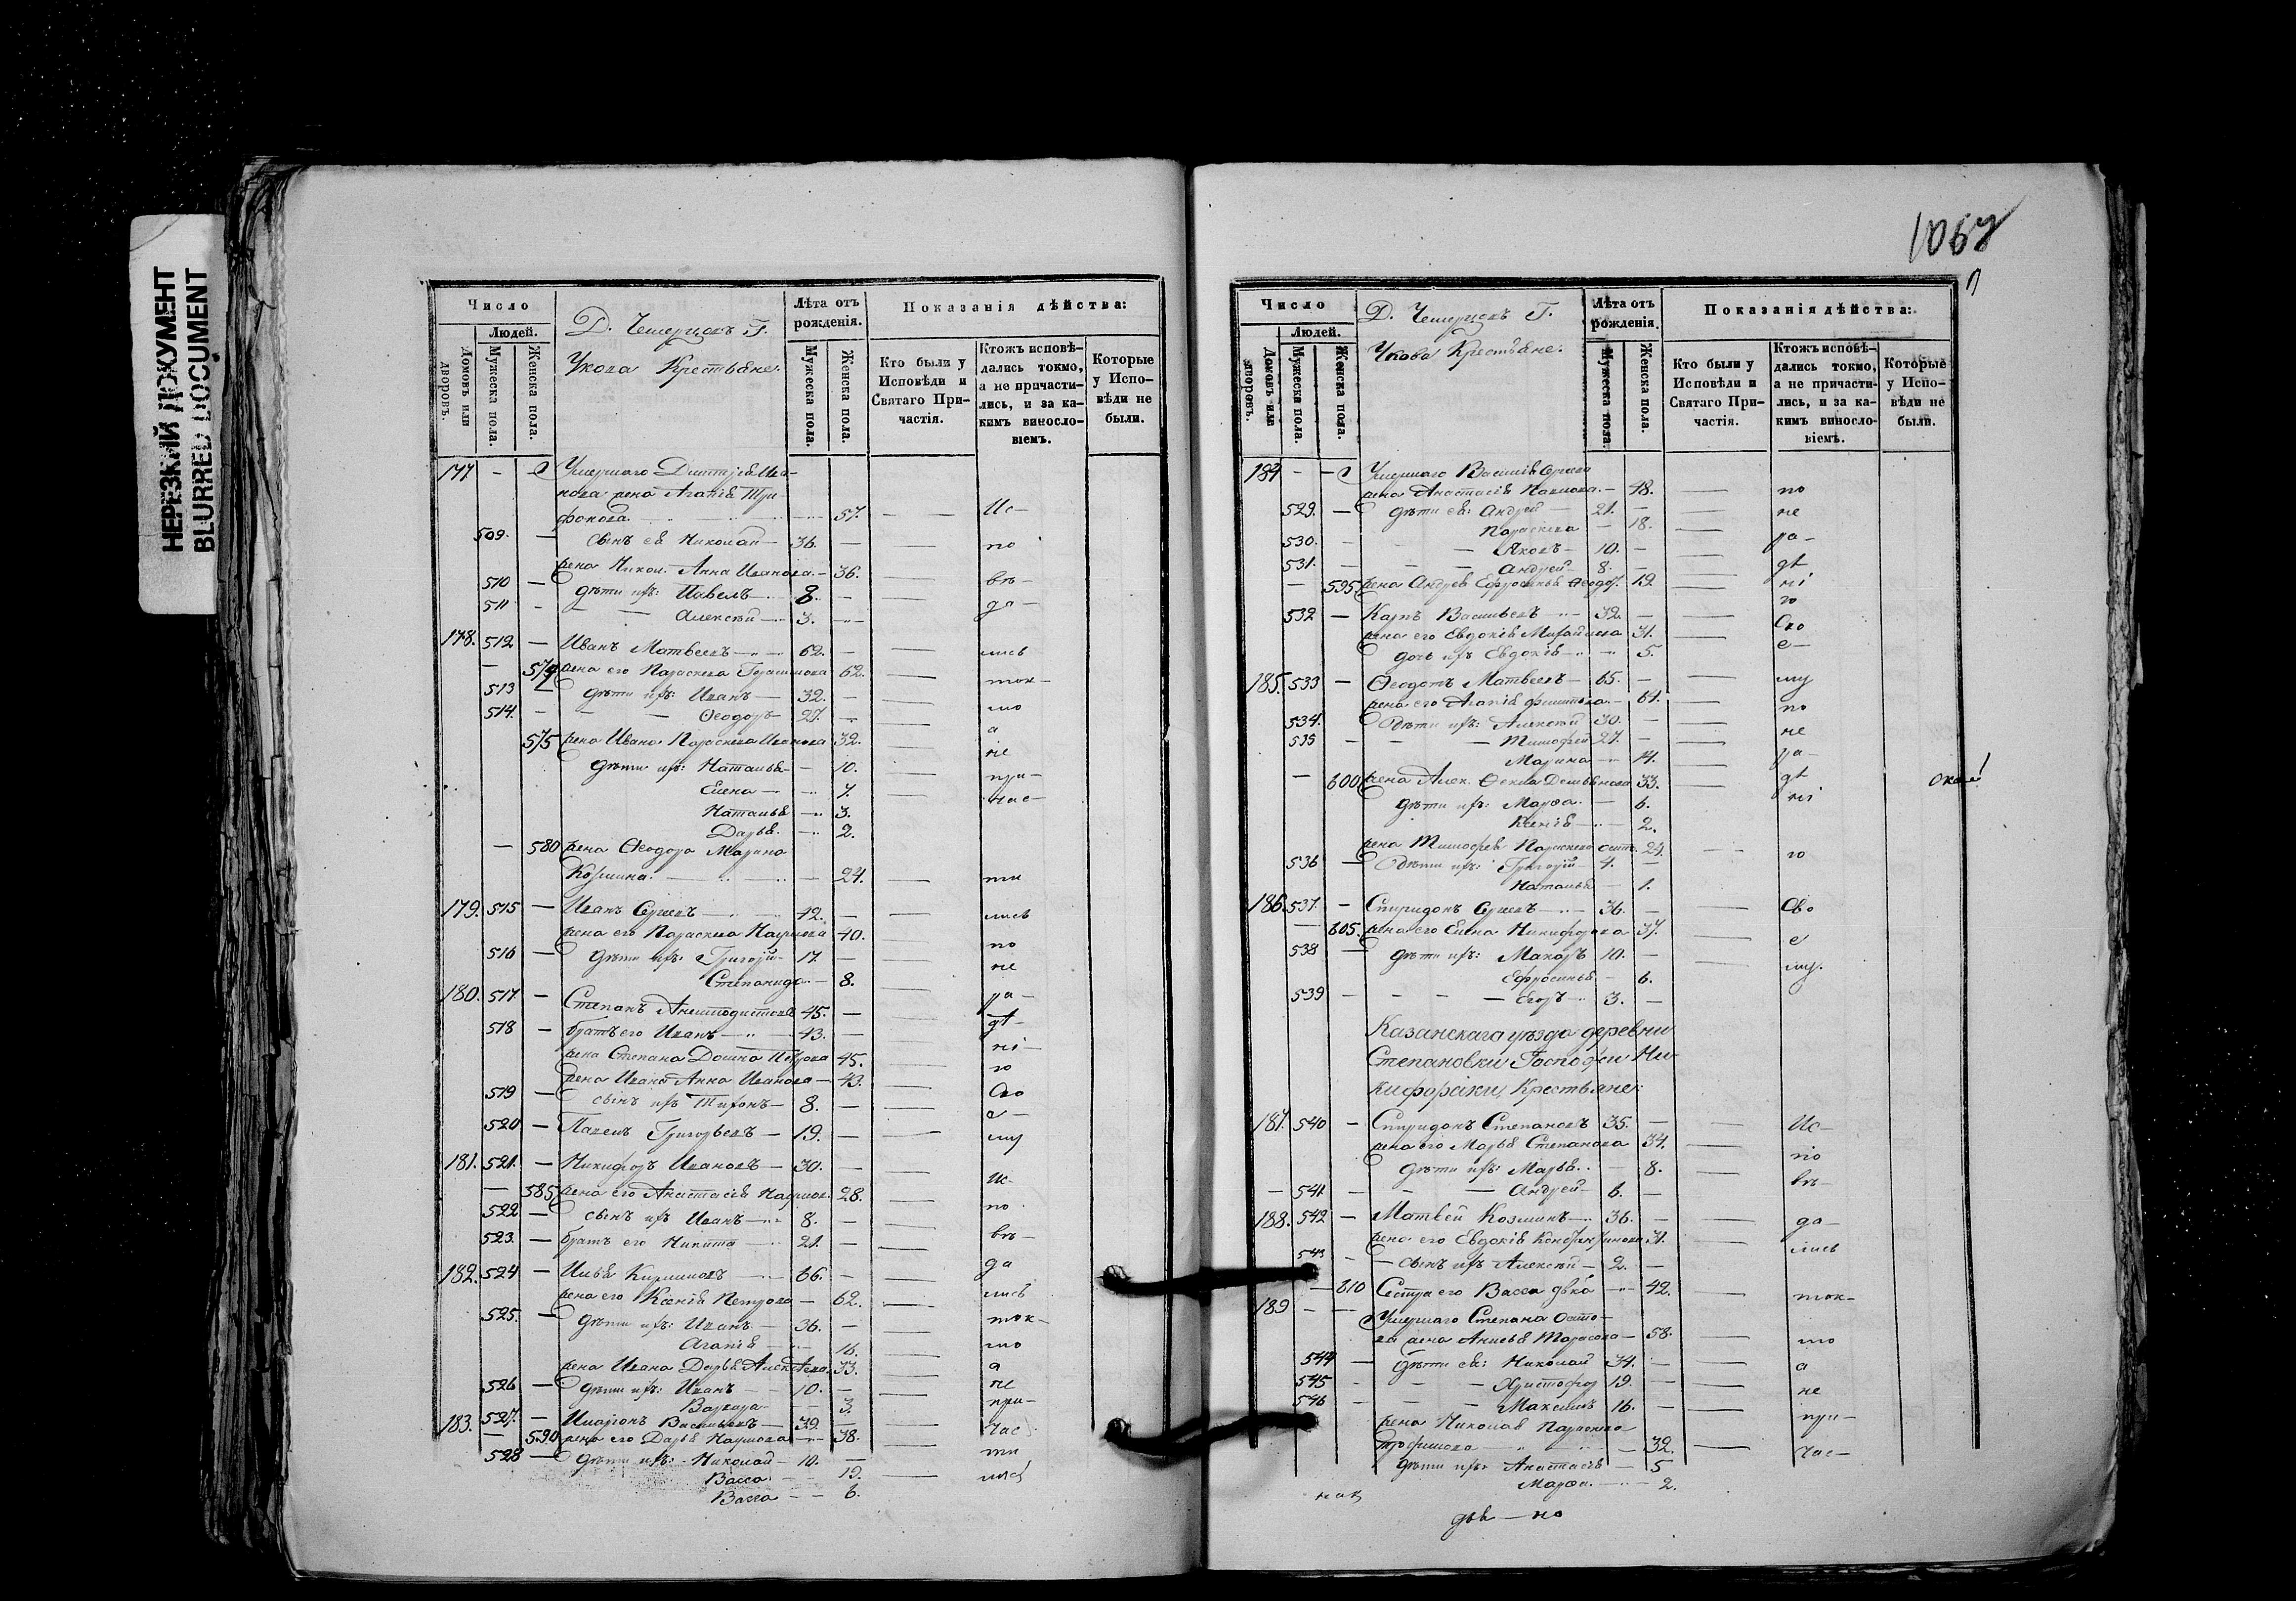 НЕРЕЗКИЙ ДОКУМЕНТ
BLURRED DOCUMENT
Число
Людей.
Домовъ или дворовъ.
Мужеска пола.
Женска пола.
Д. Чемерцовъ Г.
Укова Крестьяне.
Лѣта отъ рожденія.
Мужеска пола.
Женска пола.
Показанія дѣйства:
Кто были у Исповѣди и Святаго Причастія.
Ктожъ исповѣдались токмо, а не причастились, и за какимъ винословіемъ.
Которые у Исповѣди не были.
177 - - Умершаго Дмитрія Ива-
нова жена Агапія Три-
фонова 57. Ис-
509. - сынъ ея Николай - 36. - по
жена Никол. Анна Иванова - 36. вѣ-
510 - дѣти ихъ: Павелъ - 8. - да-
511 - Алексѣй - 3.
178. 512 - Иванъ Матвеевъ - 62. - лись
- жена его Параскева Герасимова 62. ток-
513 - дѣти ихъ: Иванъ - 32. - мо
514. - - Ѳеодоръ - 27. - а
575 жена Ивана Параскева Иванова 32. не
дѣти ихъ: Наталья - 10. при-
Елена - 7. час-
Наталья - 3.
Дарья - 2.
- 580 жена Ѳеодора Марина
Козмина - 24. ти
179. 515 - Иванъ Сергеевъ - 42. - лись
жена его Параскева Наумова 40. по
516 - дѣти ихъ: Григорій - 17. - не
Степанида - 8. ра-
180. 517 - Степанъ 45. - дѣ-
518 - братъ его Иванъ - 43. - ні-
жена Степана Домна Петрова 45. ю
жена Ивана Анна Иванова - 43. Сво
519 - сынъ ихъ Тихонъ - 8. - е-
520 - Павелъ Григорьевъ - 19. - му
181. 521. - Никифоръ Ивановъ - 30. - ис-
- 585 жена его Анастасія Наумов. 28. по
522 - сынъ ихъ Иванъ - 8. - вѣ-
523. - братъ его Никита - 21. - да
182. 524 - Илья Кириловъ - 66. - лись
жена его Ксенія Петрова - 62. ток-
525. - дѣти ихъ: Иванъ - 36. - мо
Агапія - 16.
жена Ивана Дарья Алексѣева. 33. а
526 - дѣти ихъ: Иванъ - 10. - не
Варвара - 3. при-
183. 527. - Иларіонъ Васильевъ - 39. - час
- 590 жена его Дарья Наумова - 38. ти
528 - дѣти ихъ: Николай - 10. - лись
Васса - 12.
Васса - 6.
1067
Число
Людей.
Домовъ или дворовъ.
Мужеска пола.
Женска пола.
Д. Чемерцовъ Г.
Укова Крестьяне.
Лѣта отъ рожденія.
Мужеска пола.
Женска пола.
Показанія дѣйства:
Кто были у Исповѣди и Святаго Причастія.
Ктожъ исповѣдались токмо, а не причастились, и за какимъ винословіемъ.
Которые у Исповѣди не были.
184 - - Умершаго Василія Сергеева
жена Анастасія Павлова - 48. по
529. - дѣти ея: Андрей - 21. - не
Параскева - 18. ра-
530. - Яковъ - 10. -
531. - Андрей - 8. - дѣ
- 595 жена Андрея Ефросинья Ѳеодор. 19 ні
532 - Карпъ Васильевъ - 32. - ю
жена его Евдокія Михайлова 31. Сво
дочь ихъ Евдокія - 5. е-
185. 533 - Ѳеодотъ Матвеевъ - 65. - му
жена его Агапія Филипова - 64. по
534. дѣти ихъ: Алексѣй 30. - не
535 - Тимофей 27. - ра-
Марина - 14.
- 600 жена Алек. Ѳекла Демьянова 33. дѣ
дѣти ихъ: Марѳа - 6. ні
Ксенія - 2.
жена Тимофея Параскева 24. ю
536 - дѣти ихъ: Григорій - 4. -
Наталья - 1.
186. 537. - Спиридонъ Сергеевъ - 36. - Сво
- 605. жена его Елена Никифорова 37. е
538 - дѣти ихъ: Макаръ 10. - му.
Ефросинья - 6.
539 - - Егоръ 3. -
Казанскаго уѣзда деревни
Степановки Госпожи Ни-
кифораки, Крестьяне:
187. 540 - Спиридонъ Степановъ 35. - Ис-
жена его Марья Степанова 34. по
дѣти ихъ: Марья - 8. вѣ-
- 541 - - Андрей - 6. -
188. 542 - Матвей Козминъ - 36. - да-
жена его Евдокія 31. лись
543 - сынъ ихъ Алексѣй - 2. -
- 610 Сестра его Васса дѣвка - 42. ток-
189 - - Умершаго Степана
жена Анисья Тарасова - 58. мо
544 - дѣти ея: Николай 34. - а
545 - - Христофоръ 19. - не
546 - - Максимъ 16. - при-
жена Николая Параскева
Трофимова - 32. час-
дѣти ихъ: Анастасія - 5
Марѳа - 2.